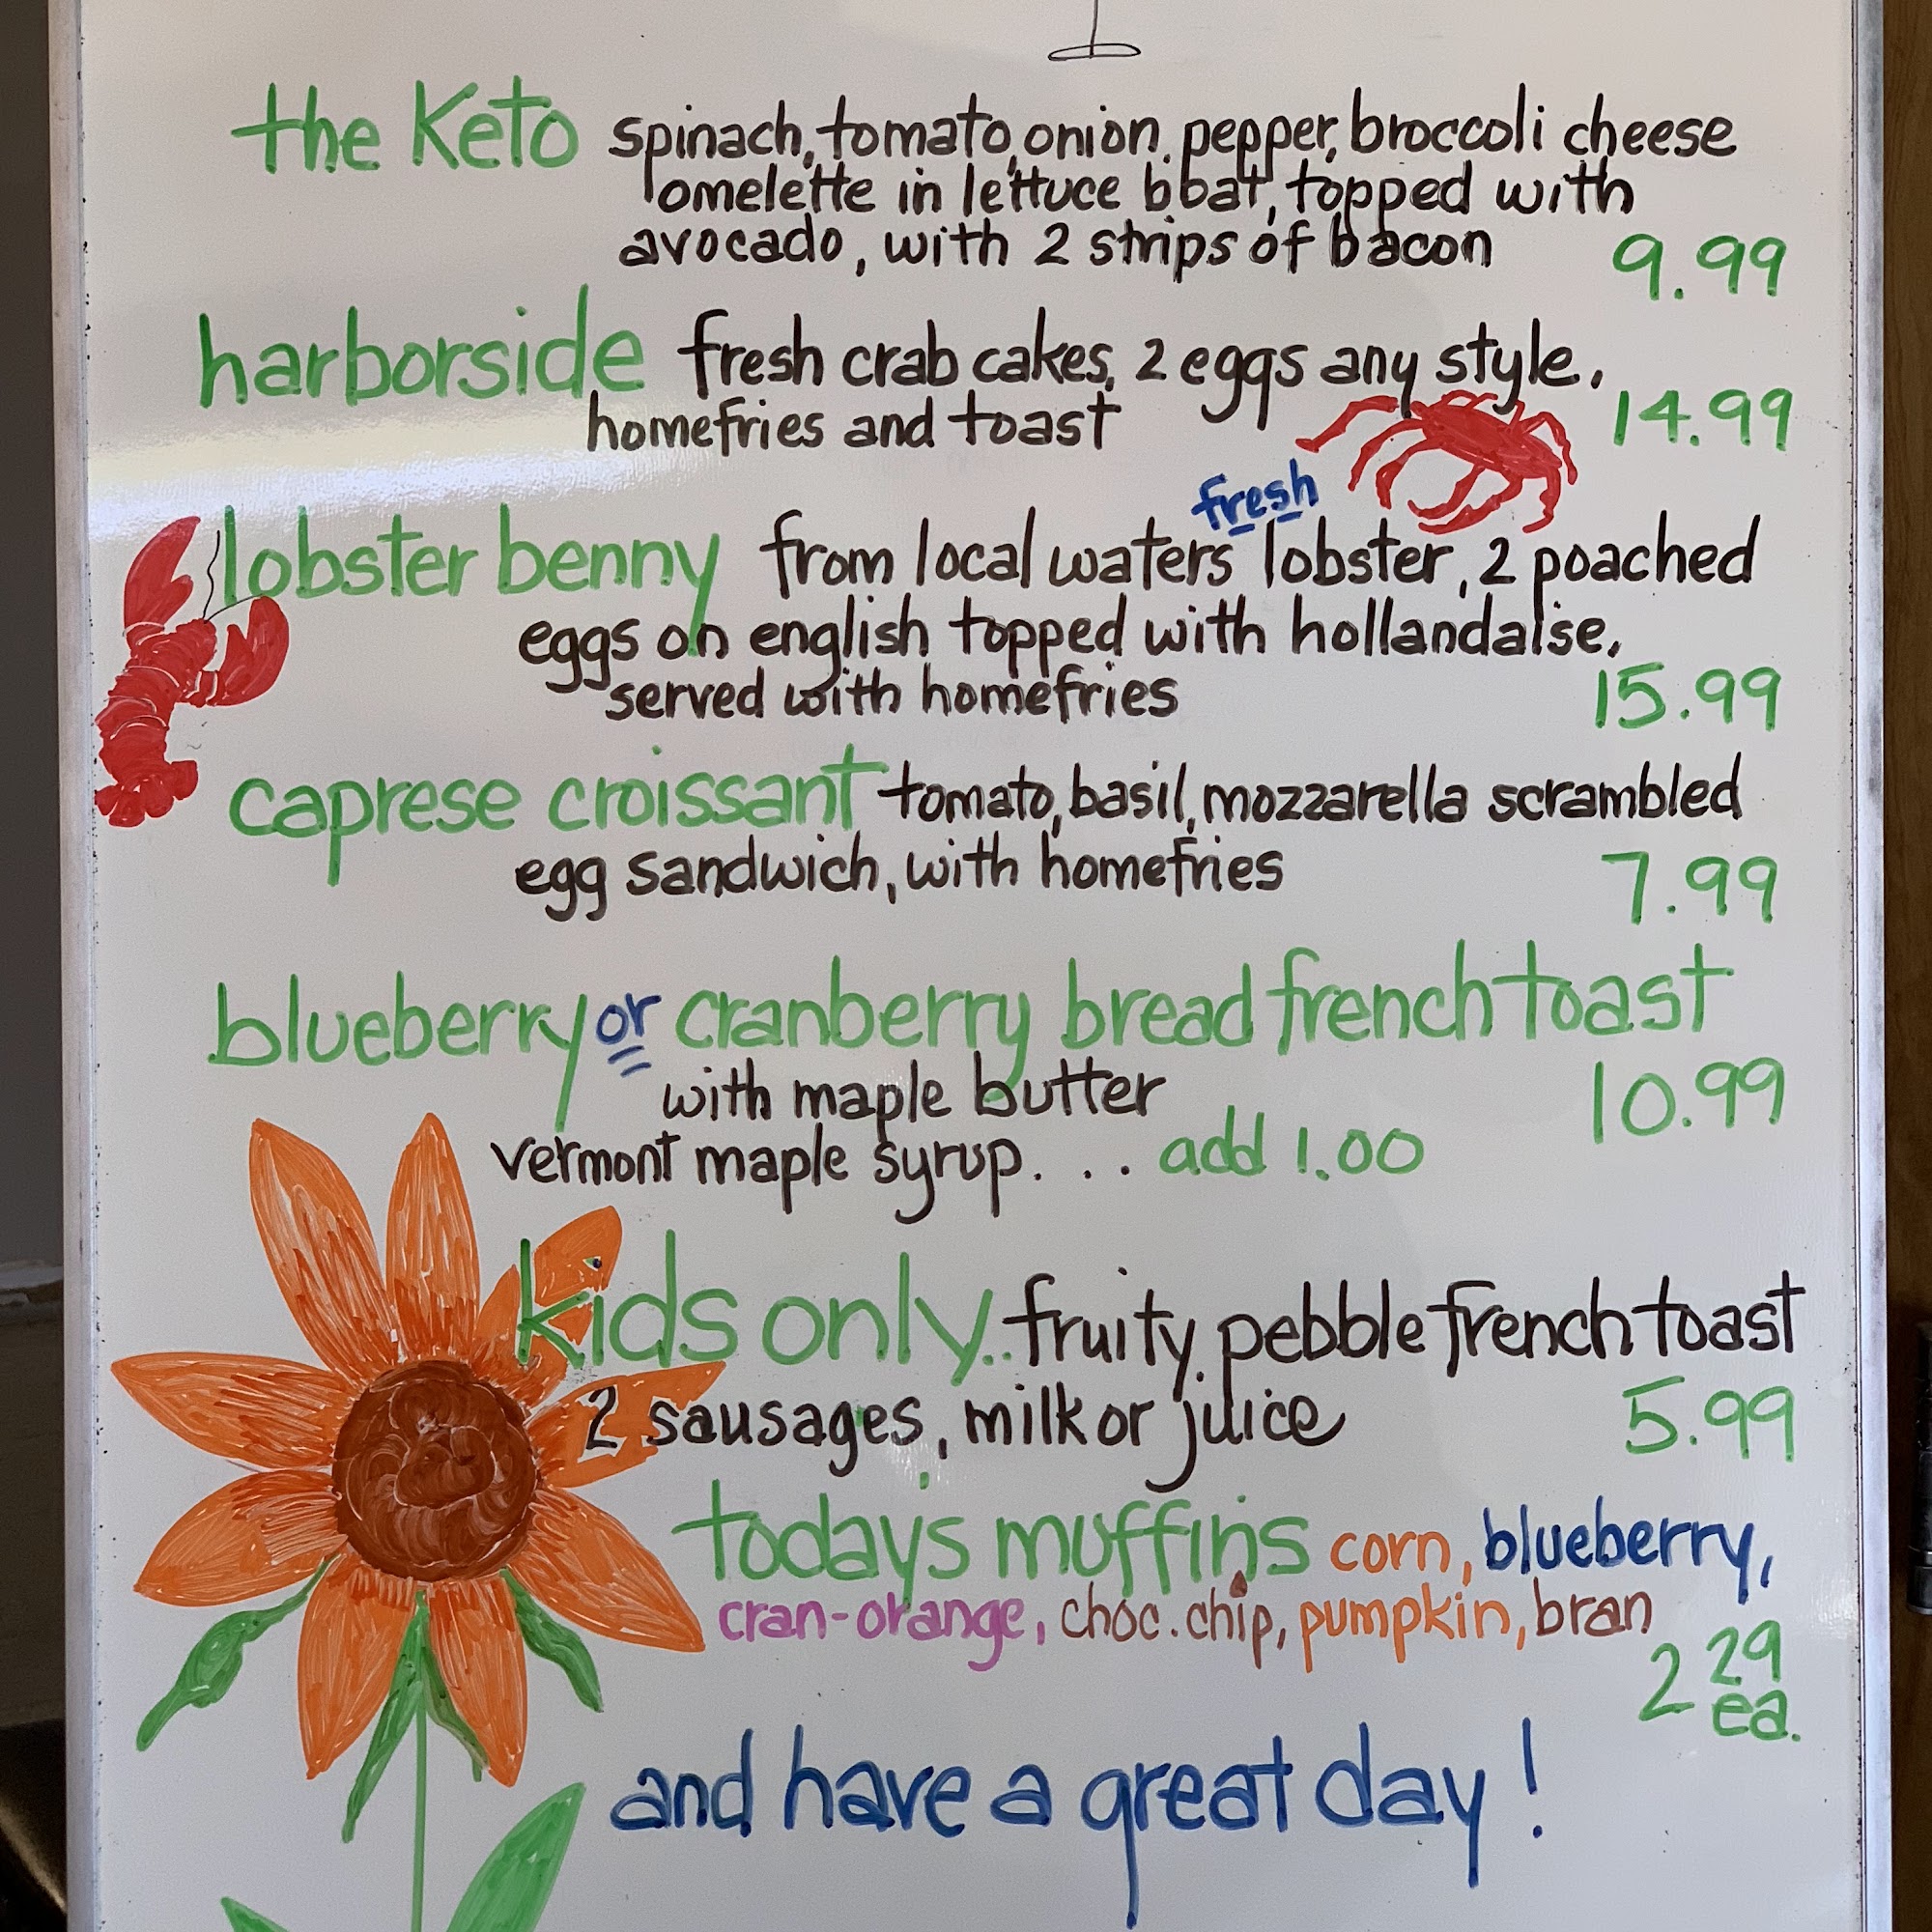 the Keto spinach, tomato, onion, pepper, broccoli cheese
omelette in lettuce bbat, topped with
avocado, with 2 strips of bacon 9.99
harborside fresh crab cakes, 2 eggs any style,
homefries and toast 14.99
fresh
lobster benny from local waters lobster, 2 poached
eggs on english topped with hollandaise,
served with homefries 15.99
caprese croissant tomato, basil, mozzarella scrambled
egg sandwich, with homefries 7.99
blueberry or cranberry bread french toast
with maple butter 10.99
vermont maple syrup... add 1.00
kids only.. fruity pebble french toast
2 sausages, milk or juice 5.99
today's muffins corn, blueberry,
cran-orange, choc. chip, pumpkin, bran
2 29 ea.
and have a great day!